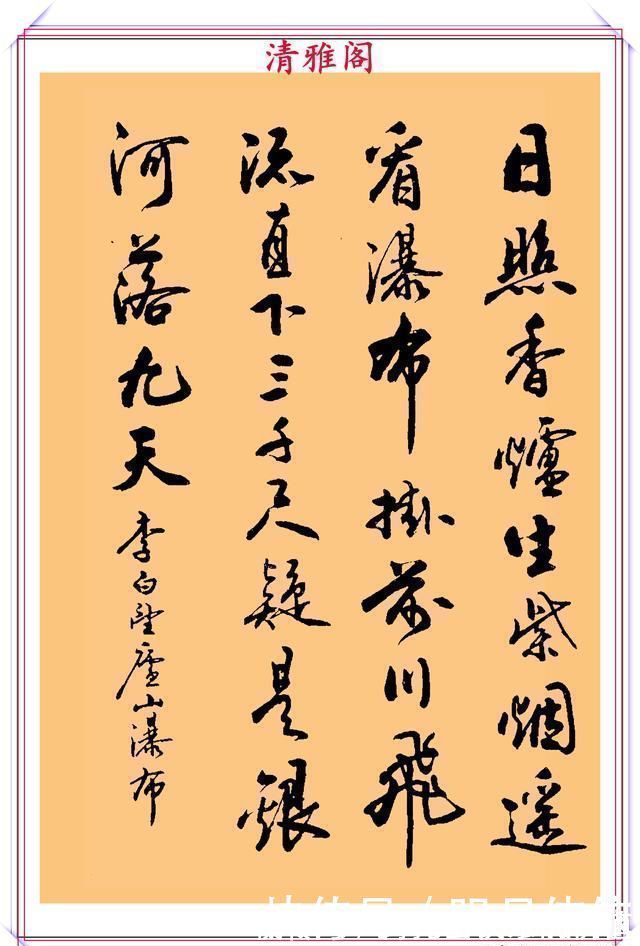 清雅阁
日照香爐生紫烟遥
看瀑布掛前川飛
流直下三千尺疑是銀
河落九天
李白望廬山瀑布